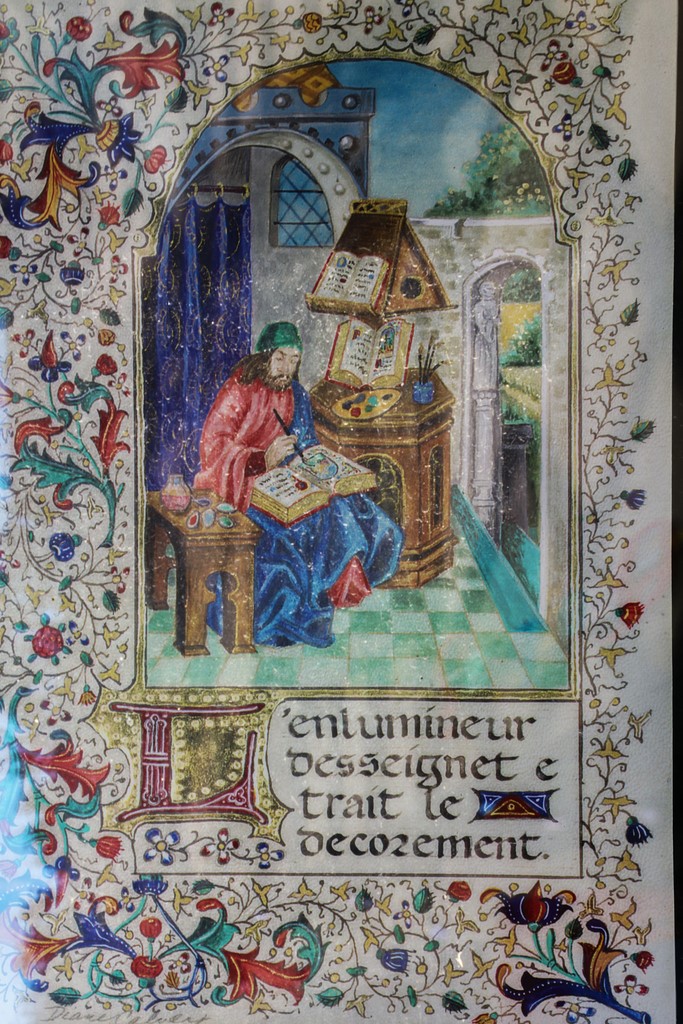 L'enlumineur
desseignet e
trait le
decorement.